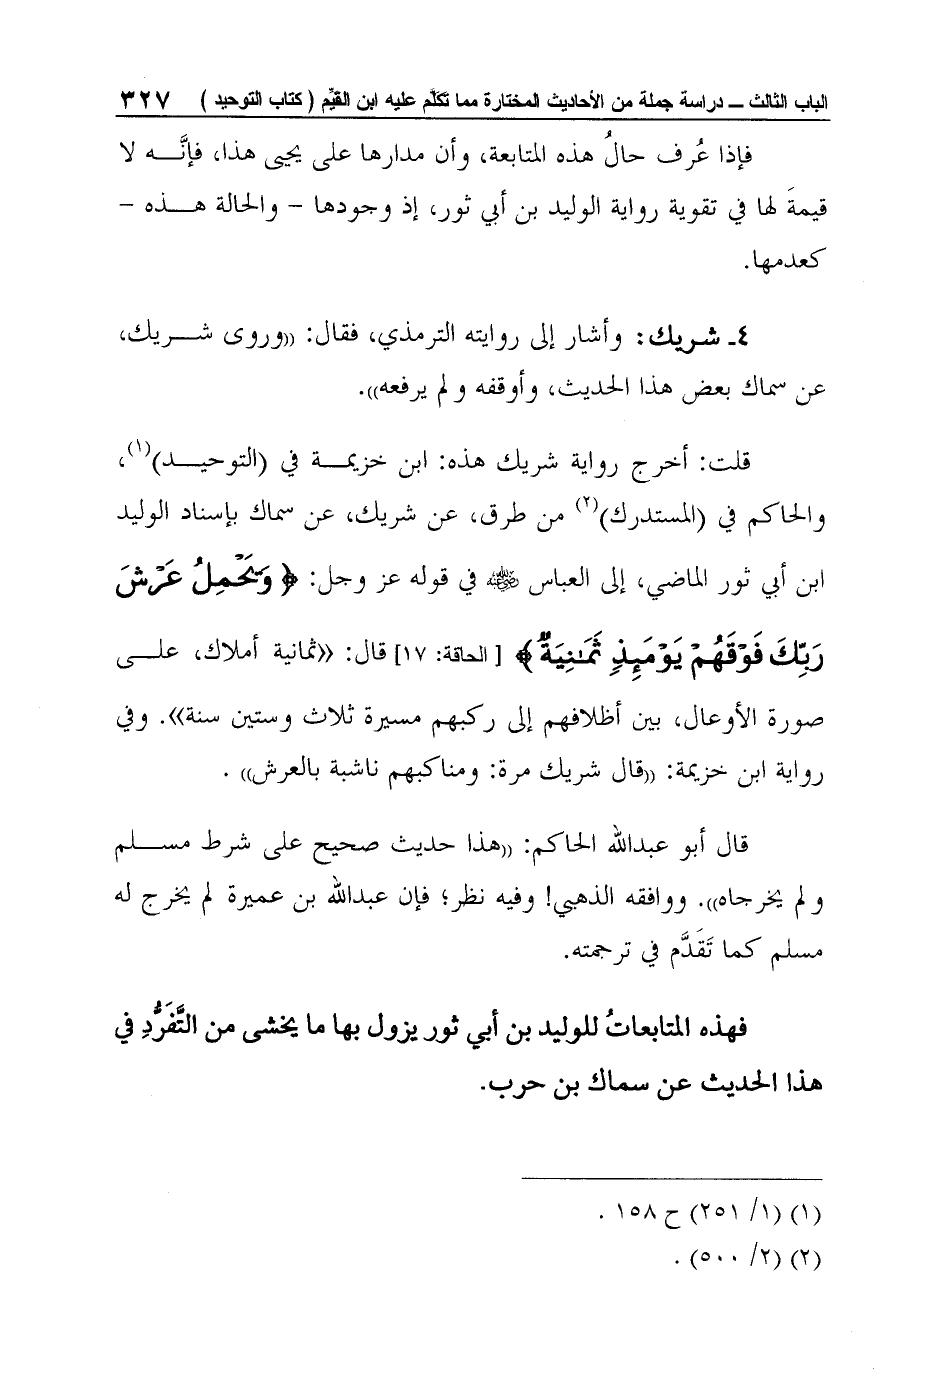 الباب الثالث ــ دراسة جملة من الأحاديث المختارة مما تكلَّم عليه ابن القيِّم ( كتاب التوحيد ) ٣٢٧
فإذا عُرف حالُ هذه المتابعة، وأن مدارها على يحيى هذا، فإنَّـــه لا
قيمةَ لها في تقوية رواية الوليد بن أبي ثور، إذ وجودها – والحالة هـــذه –
كعدمها.
٤ـ شريك: وأشار إلى روايته الترمذي، فقال: ((وروى شـــريك،
عن سماك بعض هذا الحديث، وأوقفه ولم يرفعه)).
قلت: أخرج رواية شريك هذه: ابن خزيمـــة في (التوحيـــد)(١)،
والحاكم في (المستدرك)(٢) من طرق، عن شريك، عن سماك بإسناد الوليد
ابن أبي ثور الماضي، إلى العباس ﷺ في قوله عز وجل: ﴿ وَيَحْمِلُ عَرْشَ
رَبِّكَ فَوْقَهُمْ يَوْمَئِذٍ ثَمَـٰنِيَةٌ ﴾ [ الحاقة: ١٧] قال: «ثمانية أملاك، علـــى
صورة الأوعال، بين أظلافهم إلى ركبهم مسيرة ثلاث وستين سنة». وفي
رواية ابن خزيمة: ((قال شريك مرة: ومناكبهم ناشبة بالعرش)) .
قال أبو عبدالله الحاكم: ((هذا حديث صحيح على شرط مســـلم
ولم يخرجاه)). ووافقه الذهبي! وفيه نظر؛ فإن عبدالله بن عميرة لم يخرج له
مسلم كما تَقَدَّم في ترجمته.
فهذه المتابعاتُ للوليد بن أبي ثور يزول بها ما يخشى من التَّفَرُّدِ في
هذا الحديث عن سماك بن حرب.
(١) (١/ ٢٥١) ح ١٥٨ .
(٢) (٢/ ٥٠٠) .